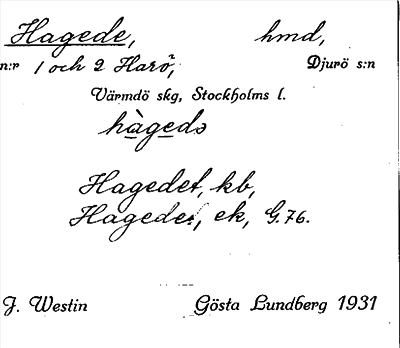 Hagede, hmd,
n:r 1 och 2 Harö, Djurö s:n
Värmdö skg, Stockholms l.
hàgedə
Hagedet, kb,
Hagedet, ek, G. 76.
J. Westin Gösta Lundberg 1931